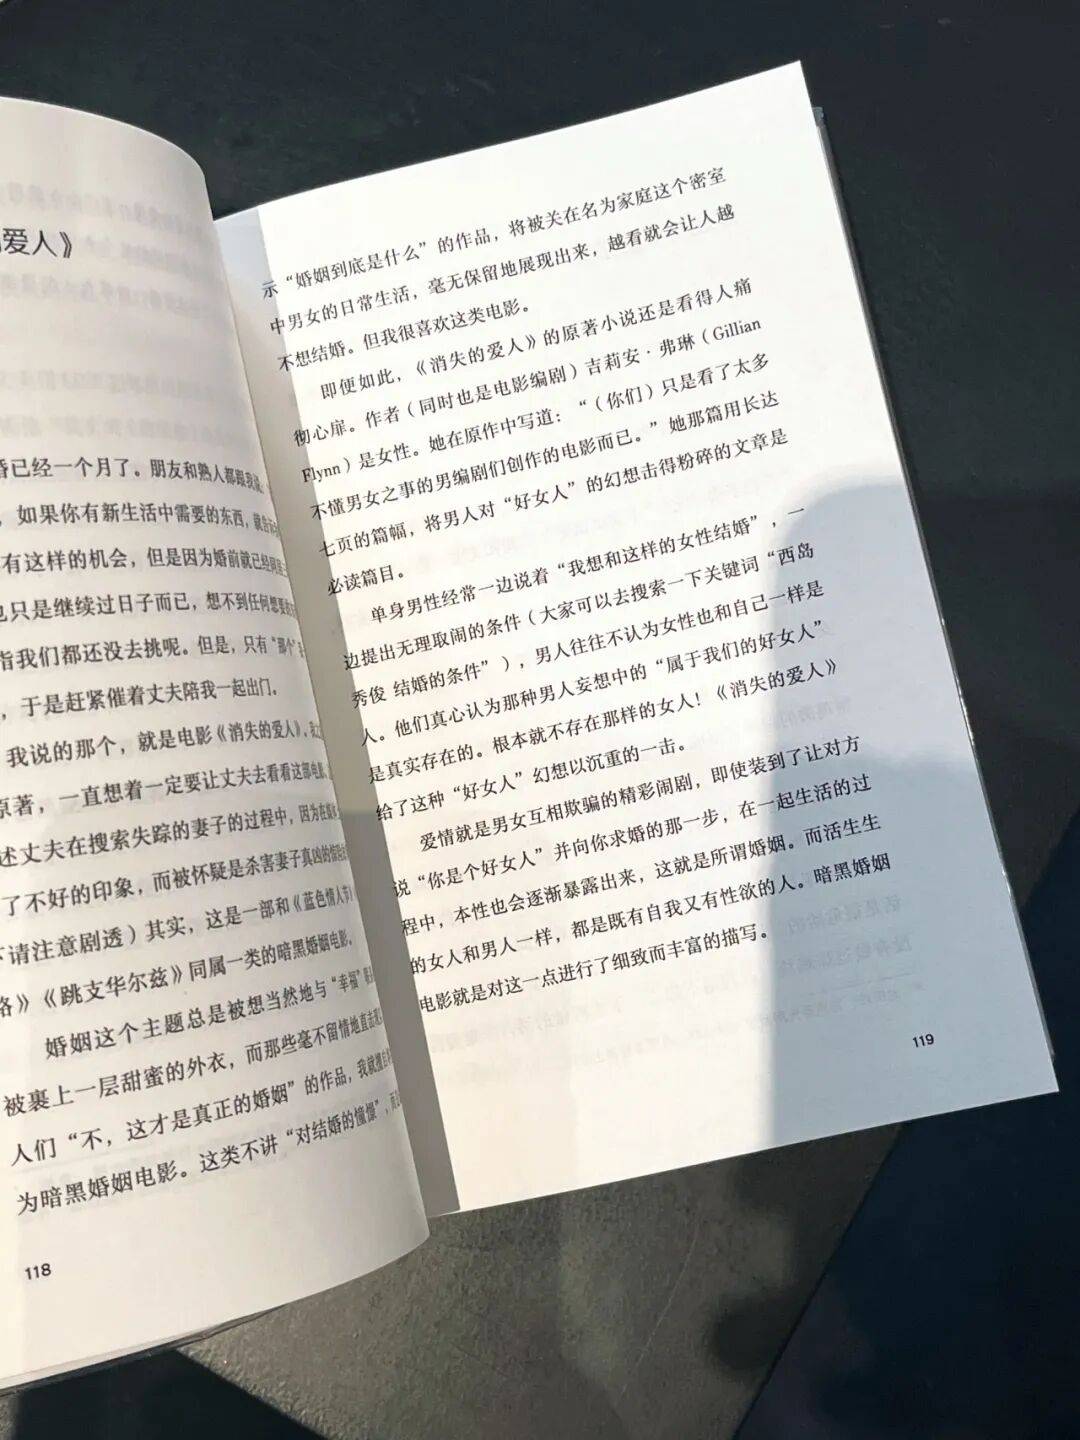 爱人》
婚已经一个月了。朋友和熟人都跟我说：
，如果你有新生活中需要的东西，就告诉
有这样的机会，但是因为婚前就已经同居
也只是继续过日子而已，想不到任何想要
指我们都还没去挑呢。但是，只有“那个”
，于是赶紧催着丈夫陪我一起出门。
我说的那个，就是电影《消失的爱人》，
原著，一直想着一定要让丈夫去看看这部电影。
述丈夫在搜索失踪的妻子的过程中，因为在
了不好的印象，而被怀疑是杀害妻子真凶的
下请注意剧透）其实，这是一部和《蓝色情人节》
路》《跳支华尔兹》同属一类的暗黑婚姻电影。
婚姻这个主题总是被想当然地与“幸福”
被裹上一层甜蜜的外衣，而那些毫不留情地直击
人们“不，这才是真正的婚姻”的作品，我就擅自
为暗黑婚姻电影。这类不讲“对结婚的憧憬”，
118
示“婚姻到底是什么”的作品，将被关在名为家庭这个密室
中男女的日常生活，毫无保留地展现出来，越看就会让人越
不想结婚。但我很喜欢这类电影。
即便如此，《消失的爱人》的原著小说还是看得人痛
彻心扉。作者（同时也是电影编剧）吉莉安·弗琳（Gillian
Flynn）是女性。她在原作中写道：“（你们）只是看了太多
不懂男女之事的男编剧们创作的电影而已。”她那篇用长达
七页的篇幅，将男人对“好女人”的幻想击得粉碎的文章是
必读篇目。
单身男性经常一边说着“我想和这样的女性结婚”，一
边提出无理取闹的条件（大家可以去搜索一下关键词“西岛
秀俊 结婚的条件”），男人往往不认为女性也和自己一样是
人。他们真心认为那种男人妄想中的“属于我们的好女人”
是真实存在的。根本就不存在那样的女人！《消失的爱人》
给了这种“好女人”幻想以沉重的一击。
爱情就是男女互相欺骗的精彩闹剧，即使装到了让对方
说“你是个好女人”并向你求婚的那一步，在一起生活的过
程中，本性也会逐渐暴露出来，这就是所谓婚姻。而活生生
的女人和男人一样，都是既有自我又有性欲的人。暗黑婚姻
电影就是对这一点进行了细致而丰富的描写。
119